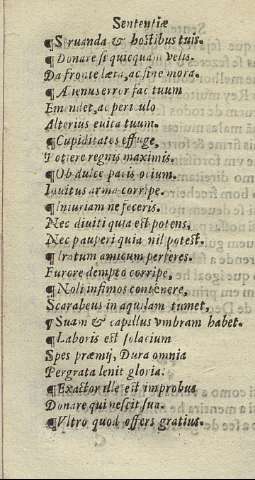 Sententiæ
¶Seruanda & hostibus tuis.
¶Donare si quicquam velis.
Da fronte læta, ac sine mora.
¶Alienus error fac tuum
Emendet, ac periculo
Alterius euita tuum.
¶Cupiditates effuge,
Potiere regnis maximis.
¶Ob dulce pacis ocium.
Inuitus arma corripe.
¶Iniuriam ne feceris.
Nec diuiti quia est potens,
Nec pauperi quia nil potest.
¶Iratum amicum perferes.
Furore dempto corripe,
¶Noli infimos contenere,
Scarabeus in aquilam tumet,
¶Suam & capillus vmbram habet.
¶Laboris est solacium
Spes præmij, Dura omnia
Pergrata lenit gloria.
¶Exactor ille est improbus
Donare qui nescit sua.
¶Vltro quod offers gratius.